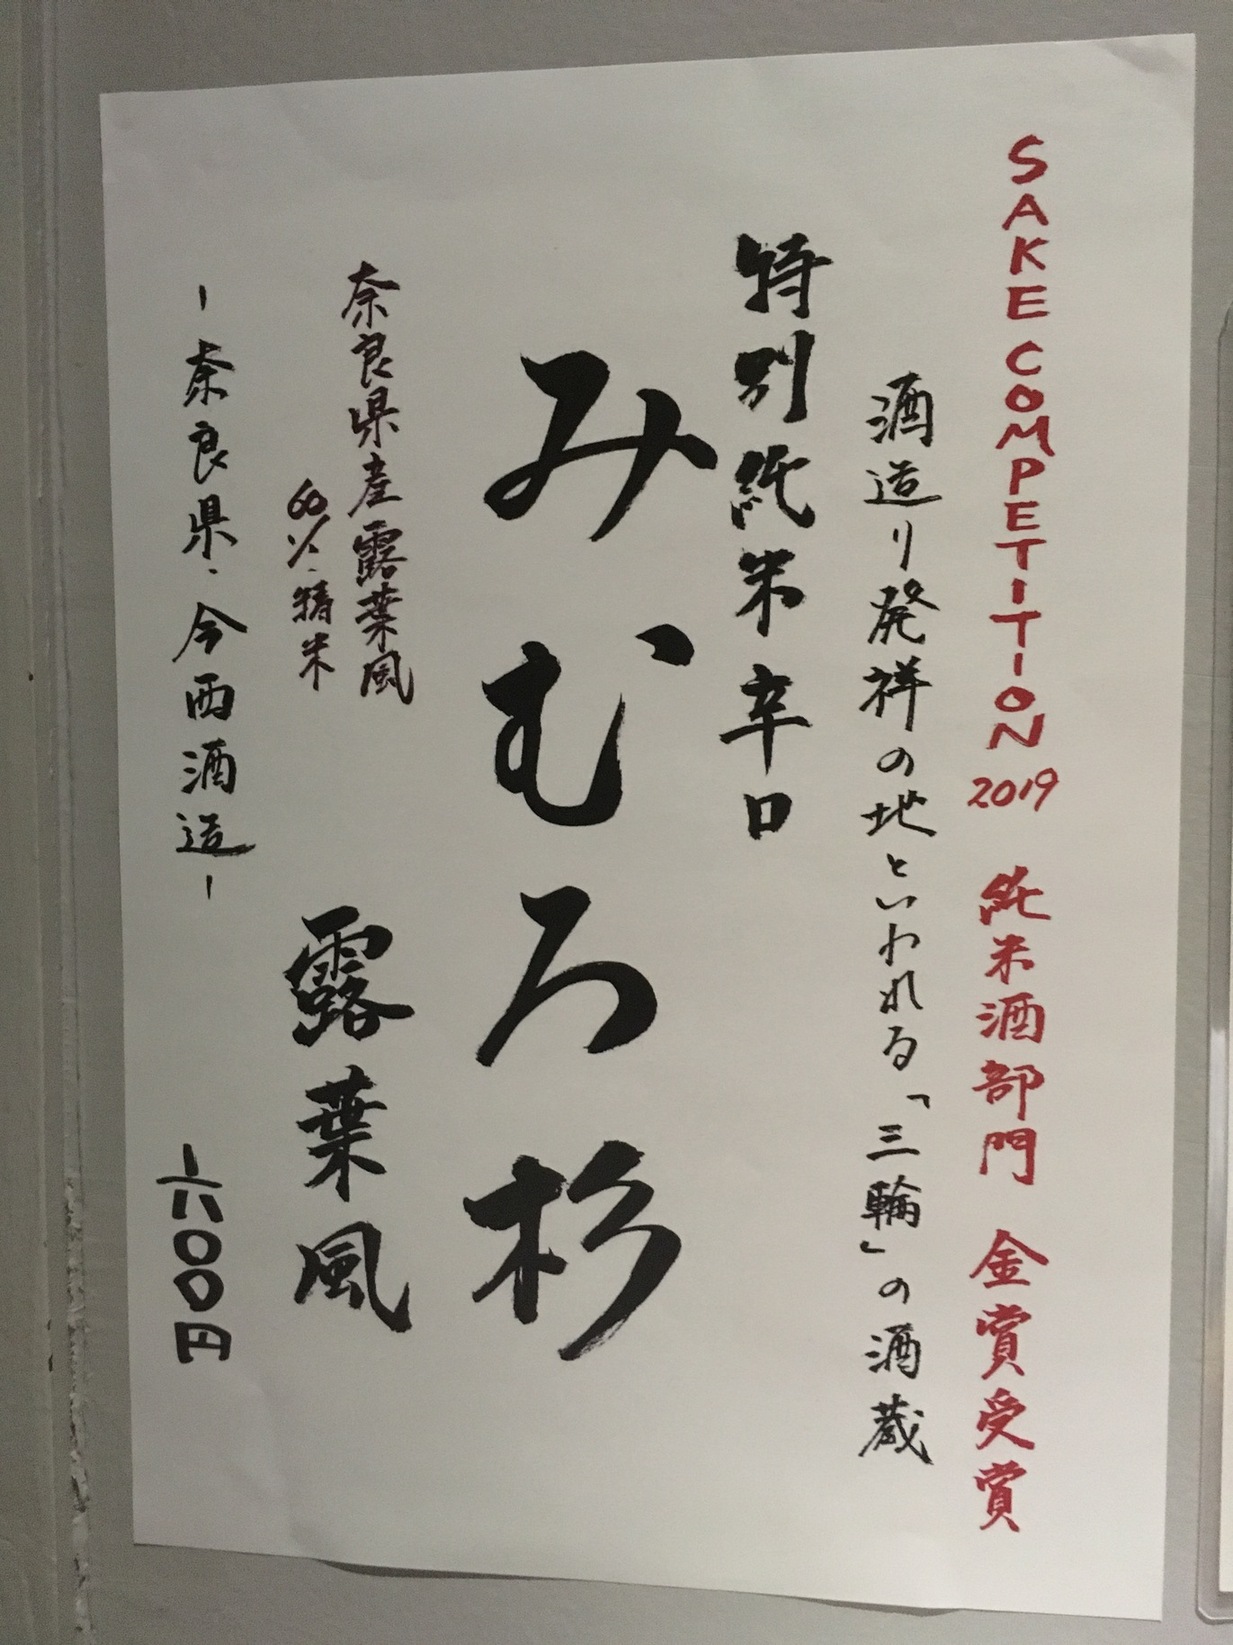 SAKE COMPETITION 2019 純米酒部門 金賞受賞
酒造り発祥の地といわれる「三輪」の酒蔵
特別純米辛口
みむろ杉
奈良県産露葉風
60%精米
露葉風
-奈良県・今西酒造-
一六〇〇円